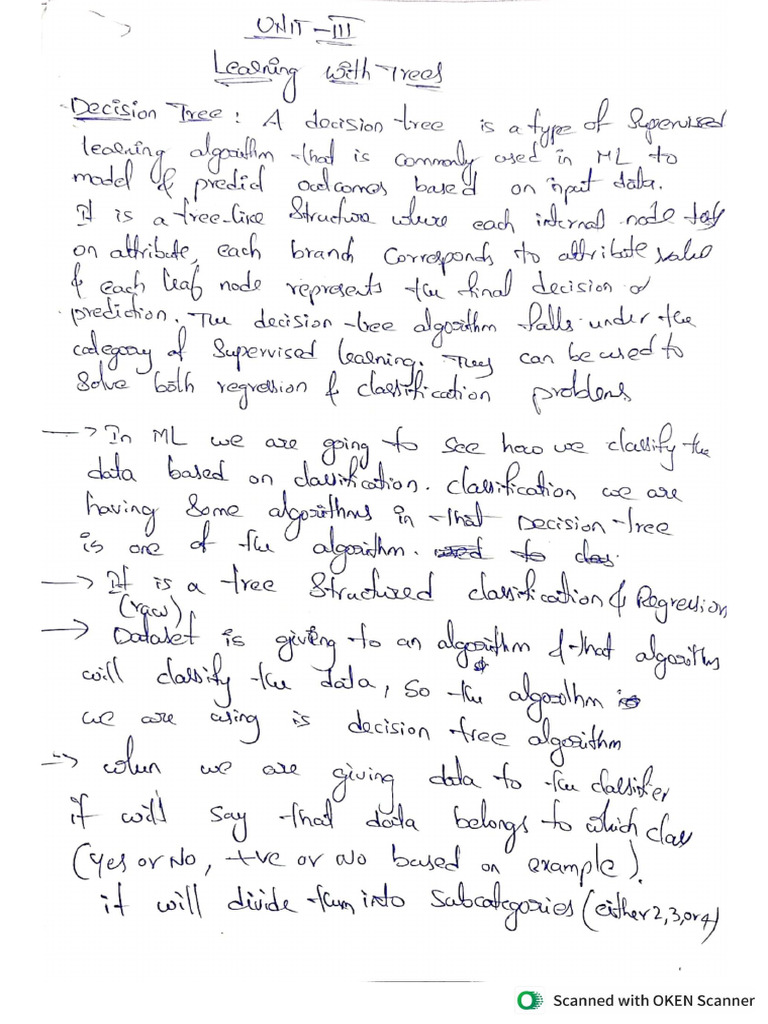 UNIT-III
Learning with Trees
Decision Tree: A decision tree is a type of Supervised
learning algorithm that is commonly used in ML to
model & predict outcomes based on input data.
It is a tree-like Structure where each internal node test
on attribute, each branch corresponds to attribute value
& each leaf node represents the final decision or
prediction. The decision-tree algorithm falls under the
category of Supervised learning. They can be used to
Solve both regression & classification problems
→ In ML we are going to see how we classify the
data based on classification. Classification we are
having Some algorithms in that Decision-tree
is one of the algorithm. used to clas.
→ It is a tree Structured classification & Regression
(raw)
→ Dataset is giving to an algorithm & that algorithm
will classify the data, So the algorithm is
we are using is decision tree algorithm
→ When we are giving data to the classifier
it will say that data belongs to which class
(Yes or No, +ve or No based on example).
it will divide them into Subcategories (either 2,3,or 4)
Scanned with OKEN Scanner